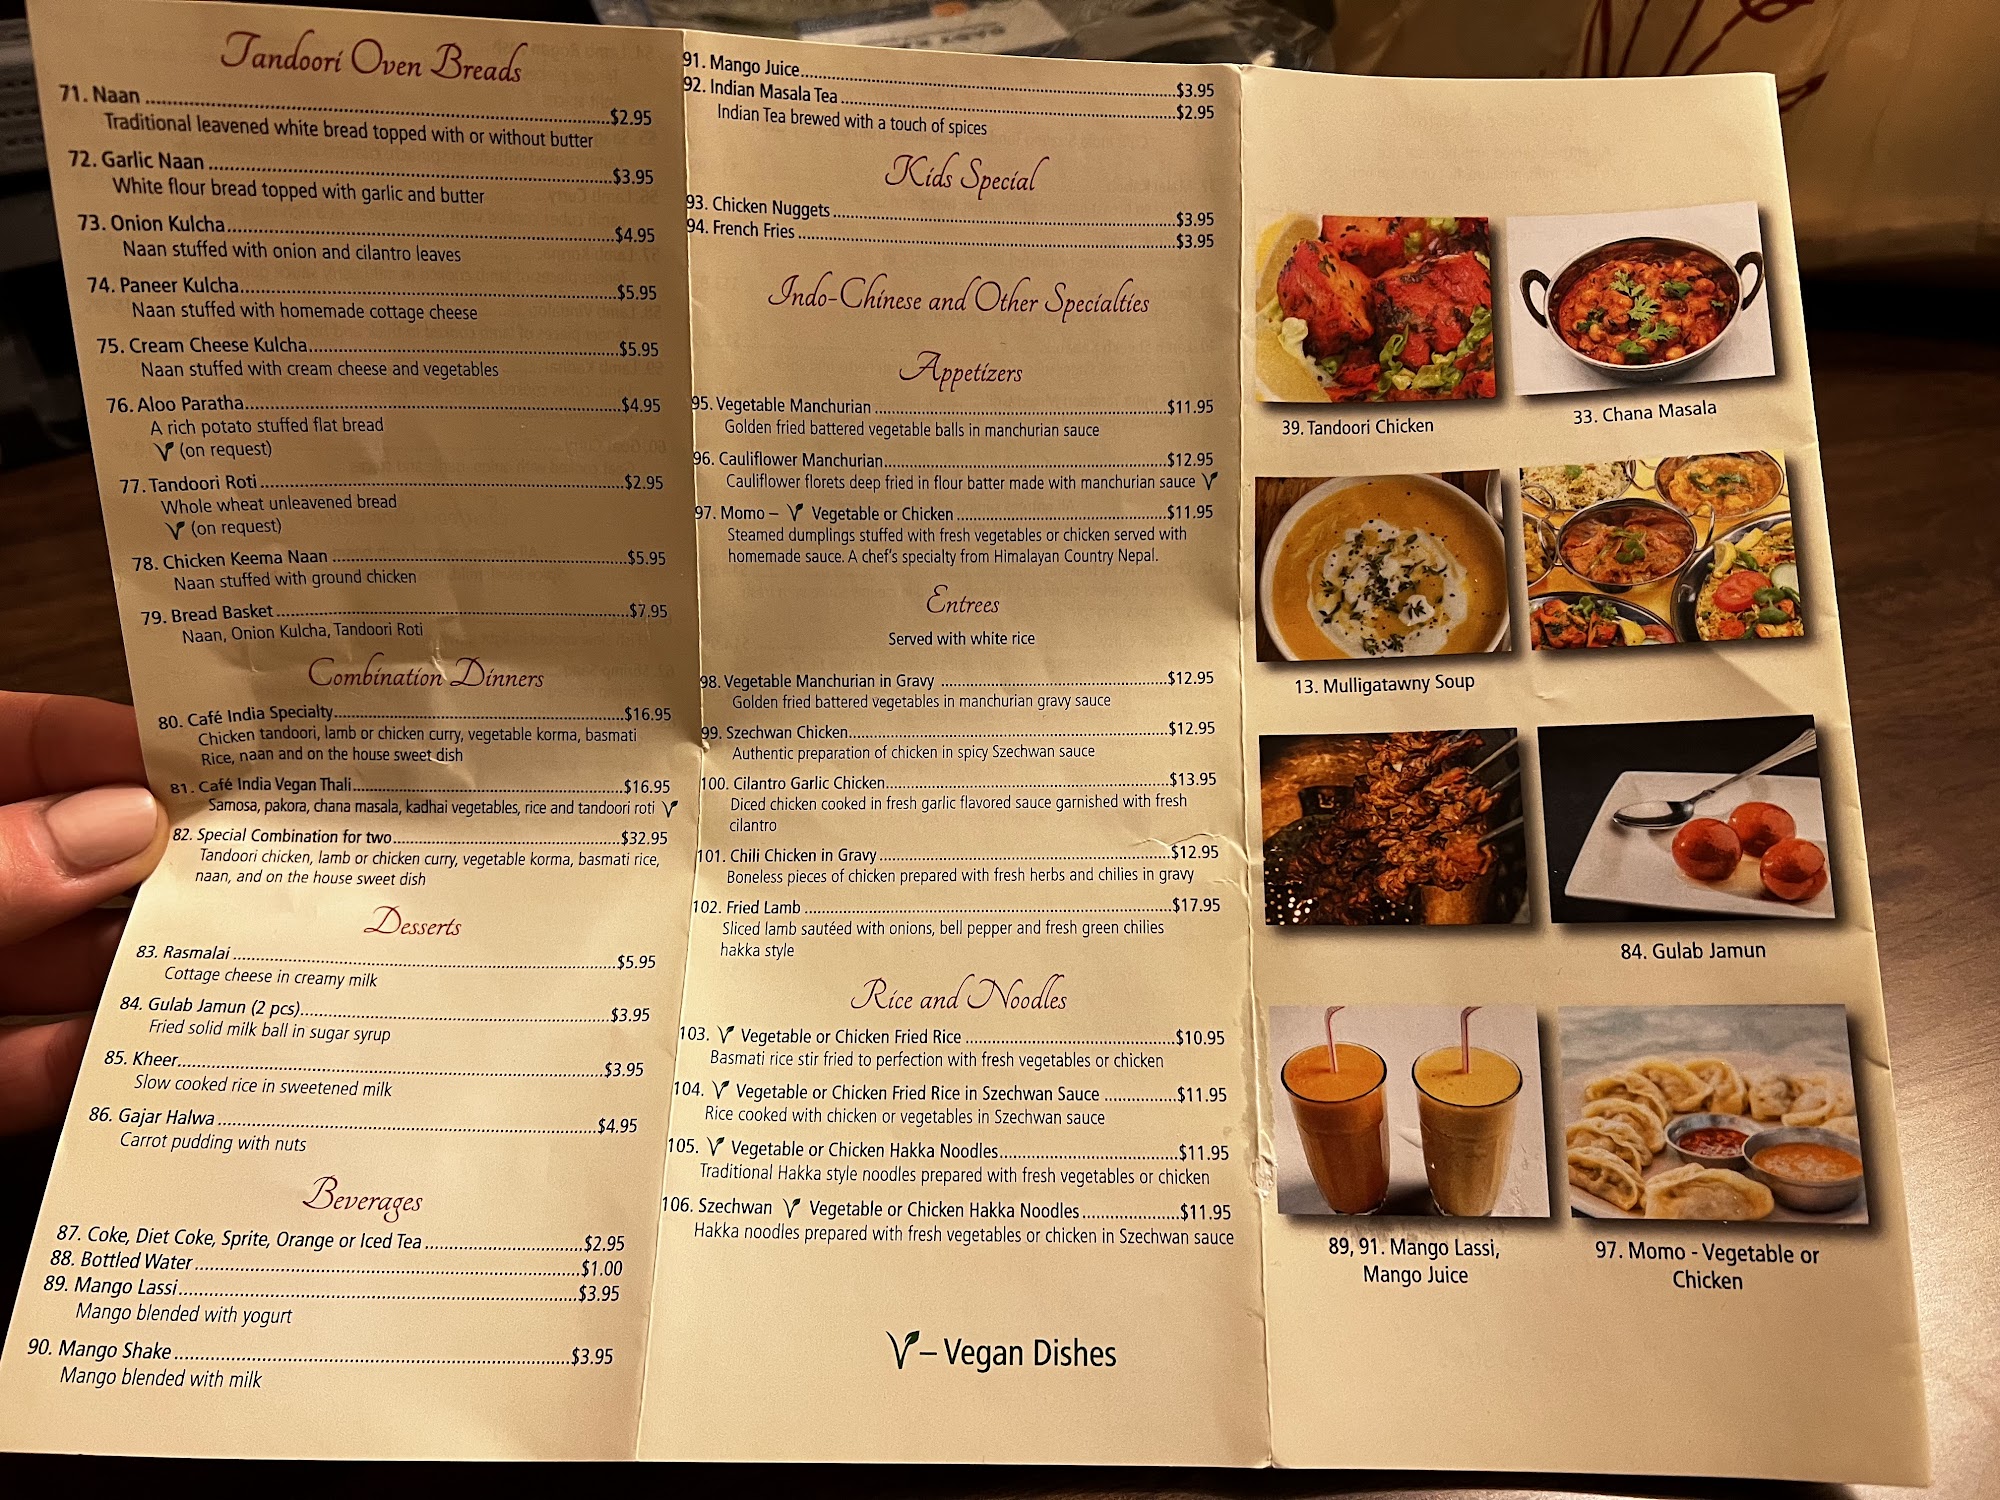 Tandoori Oven Breads
71. Naan ........ $2.95
Traditional leavened white bread topped with or without butter
72. Garlic Naan ........ $3.95
White flour bread topped with garlic and butter
73. Onion Kulcha ........ $4.95
Naan stuffed with onion and cilantro leaves
74. Paneer Kulcha ........ $5.95
Naan stuffed with homemade cottage cheese
75. Cream Cheese Kulcha ........ $5.95
Naan stuffed with cream cheese and vegetables
76. Aloo Paratha ........ $4.95
A rich potato stuffed flat bread
V (on request)
77. Tandoori Roti ........ $2.95
Whole wheat unleavened bread
V (on request)
78. Chicken Keema Naan ........ $5.95
Naan stuffed with ground chicken
79. Bread Basket ........ $7.95
Naan, Onion Kulcha, Tandoori Roti
Combination Dinners
80. Café India Specialty ........ $16.95
Chicken tandoori, lamb or chicken curry, vegetable korma, basmati
Rice, naan and on the house sweet dish
81. Café India Vegan Thali ........ $16.95
Samosa, pakora, chana masala, kadhai vegetables, rice and tandoori roti V
82. Special Combination for two ........ $32.95
Tandoori chicken, lamb or chicken curry, vegetable korma, basmati rice,
naan, and on the house sweet dish
Desserts
83. Rasmalai ........ $5.95
Cottage cheese in creamy milk
84. Gulab Jamun (2 pcs) ........ $3.95
Fried solid milk ball in sugar syrup
85. Kheer ........ $3.95
Slow cooked rice in sweetened milk
86. Gajar Halwa ........ $4.95
Carrot pudding with nuts
Beverages
87. Coke, Diet Coke, Sprite, Orange or Iced Tea ........ $2.95
88. Bottled Water ........ $1.00
89. Mango Lassi ........ $3.95
Mango blended with yogurt
90. Mango Shake ........ $3.95
Mango blended with milk
91. Mango Juice ........ $3.95
92. Indian Masala Tea ........ $2.95
Indian Tea brewed with a touch of spices
Kids Special
93. Chicken Nuggets ........ $3.95
94. French Fries ........ $3.95
Indo-Chinese and Other Specialties
Appetizers
95. Vegetable Manchurian ........ $11.95
Golden fried battered vegetable balls in manchurian sauce
96. Cauliflower Manchurian ........ $12.95
Cauliflower florets deep fried in flour batter made with manchurian sauce V
97. Momo – V Vegetable or Chicken ........ $11.95
Steamed dumplings stuffed with fresh vegetables or chicken served with
homemade sauce. A chef's specialty from Himalayan Country Nepal.
Entrees
Served with white rice
98. Vegetable Manchurian in Gravy ........ $12.95
Golden fried battered vegetables in manchurian gravy sauce
99. Szechwan Chicken ........ $12.95
Authentic preparation of chicken in spicy Szechwan sauce
100. Cilantro Garlic Chicken ........ $13.95
Diced chicken cooked in fresh garlic flavored sauce garnished with fresh
cilantro
101. Chili Chicken in Gravy ........ $12.95
Boneless pieces of chicken prepared with fresh herbs and chilies in gravy
102. Fried Lamb ........ $17.95
Sliced lamb sautéed with onions, bell pepper and fresh green chilies
hakka style
Rice and Noodles
103. V Vegetable or Chicken Fried Rice ........ $10.95
Basmati rice stir fried to perfection with fresh vegetables or chicken
104. V Vegetable or Chicken Fried Rice in Szechwan Sauce ........ $11.95
Rice cooked with chicken or vegetables in Szechwan sauce
105. V Vegetable or Chicken Hakka Noodles ........ $11.95
Traditional Hakka style noodles prepared with fresh vegetables or chicken
106. Szechwan V Vegetable or Chicken Hakka Noodles ........ $11.95
Hakka noodles prepared with fresh vegetables or chicken in Szechwan sauce
V – Vegan Dishes
39. Tandoori Chicken
33. Chana Masala
13. Mulligatawny Soup
84. Gulab Jamun
89, 91. Mango Lassi,
Mango Juice
97. Momo - Vegetable or
Chicken